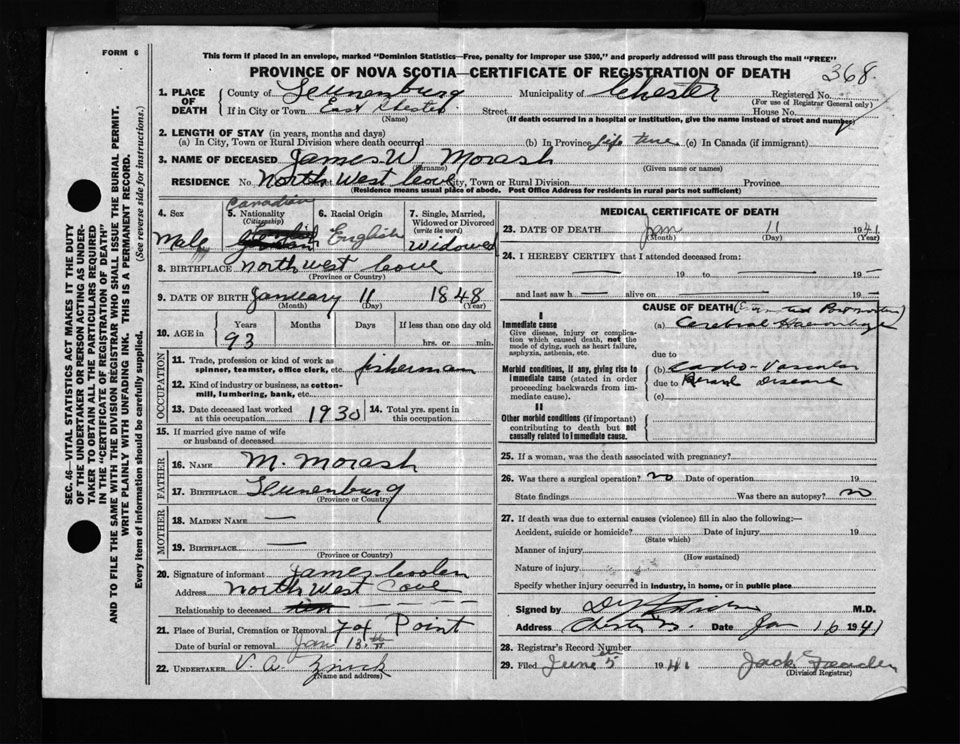 FORM 6
This form if placed in an envelope, marked "Dominion Statistics—Free, penalty for improper use $300," and properly addressed will pass through the mail "FREE"
PROVINCE OF NOVA SCOTIA—CERTIFICATE OF REGISTRATION OF DEATH
368.
1. PLACE OF DEATH
County of Lunenburg Municipality of Chester Registered No.
(For use of Registrar General only)
If in City or Town East Chester Street House No.
(Name) (If death occurred in a hospital or institution, give the name instead of street and number)
2. LENGTH OF STAY (in years, months and days)
(a) In City, Town or Rural Division where death occurred (b) In Province life time (c) In Canada (if immigrant)
3. NAME OF DECEASED James W. Morash
(Surname) (Given name or names)
RESIDENCE No. North West Cove City, Town or Rural Division Province
(Residence means usual place of abode. Post Office Address for residents in rural parts not sufficient)
4. Sex
Male
5. Nationality (Citizenship)
Canadian
6. Racial Origin
English
7. Single, Married, Widowed or Divorced (write the word)
Widowed
8. BIRTHPLACE North West Cove
(Province or Country)
9. DATE OF BIRTH January 11 1848
(Month) (Day) (Year)
10. AGE in Years Months Days If less than one day old
93 hrs. or min.
OCCUPATION
11. Trade, profession or kind of work as spinner, teamster, office clerk, etc. fisherman
12. Kind of industry or business, as cotton-mill, lumbering, bank, etc.
13. Date deceased last worked at this occupation 1930 14. Total yrs. spent in this occupation
15. If married give name of wife or husband of deceased
FATHER
16. NAME M. Morash
17. BIRTHPLACE Lunenburg
(Province or Country)
MOTHER
18. MAIDEN NAME —
19. BIRTHPLACE —
(Province or Country)
20. Signature of informant James Coolen
Address North West Cove
Relationship to deceased
21. Place of Burial, Cremation or Removal Fox Point
Date of burial or removal Jan 13th
22. UNDERTAKER V. A. Zinck
(Name and address)
MEDICAL CERTIFICATE OF DEATH
23. DATE OF DEATH Jan 11 1941
(Month) (Day) (Year)
24. I HEREBY CERTIFY that I attended deceased from:
— 19 — to — 19 —
and last saw h — alive on — 19 —
CAUSE OF DEATH
I
Immediate cause
Give disease, injury or complication which caused death, not the mode of dying, such as heart failure, asphyxia, asthenia, etc.
(a) Cerebral Haemorrhage
due to
Morbid conditions, if any, giving rise to immediate cause (stated in order proceeding backwards from immediate cause).
(b) Cardio-Vascular
due to Renal Disease
(c)
II
Other morbid conditions (if important) contributing to death but not causally related to immediate cause.
25. If a woman, was the death associated with pregnancy?
26. Was there a surgical operation? no Date of operation 19
State findings Was there an autopsy? no
27. If death was due to external causes (violence) fill in also the following:—
Accident, suicide or homicide? Date of injury 19
(State which)
Manner of injury
(How sustained)
Nature of injury
Specify whether injury occurred in industry, in home, or in public place
Signed by M.D.
Address Chester Date Jan 16 1941
28. Registrar's Record Number
29. Filed June 5th 1941
(Division Registrar)
SEC. 46—VITAL STATISTICS ACT MAKES IT THE DUTY
OF THE UNDERTAKER OR PERSON ACTING AS UNDERTAKER
TO OBTAIN ALL THE PARTICULARS REQUIRED
IN THE "CERTIFICATE OF REGISTRATION OF DEATH"
AND TO FILE THE SAME WITH THE DIVISION REGISTRAR WHO SHALL ISSUE THE BURIAL PERMIT.
WRITE PLAINLY WITH UNFADING INK. THIS IS A PERMANENT RECORD.
Every item of information should be carefully supplied. (See reverse side for instructions.)